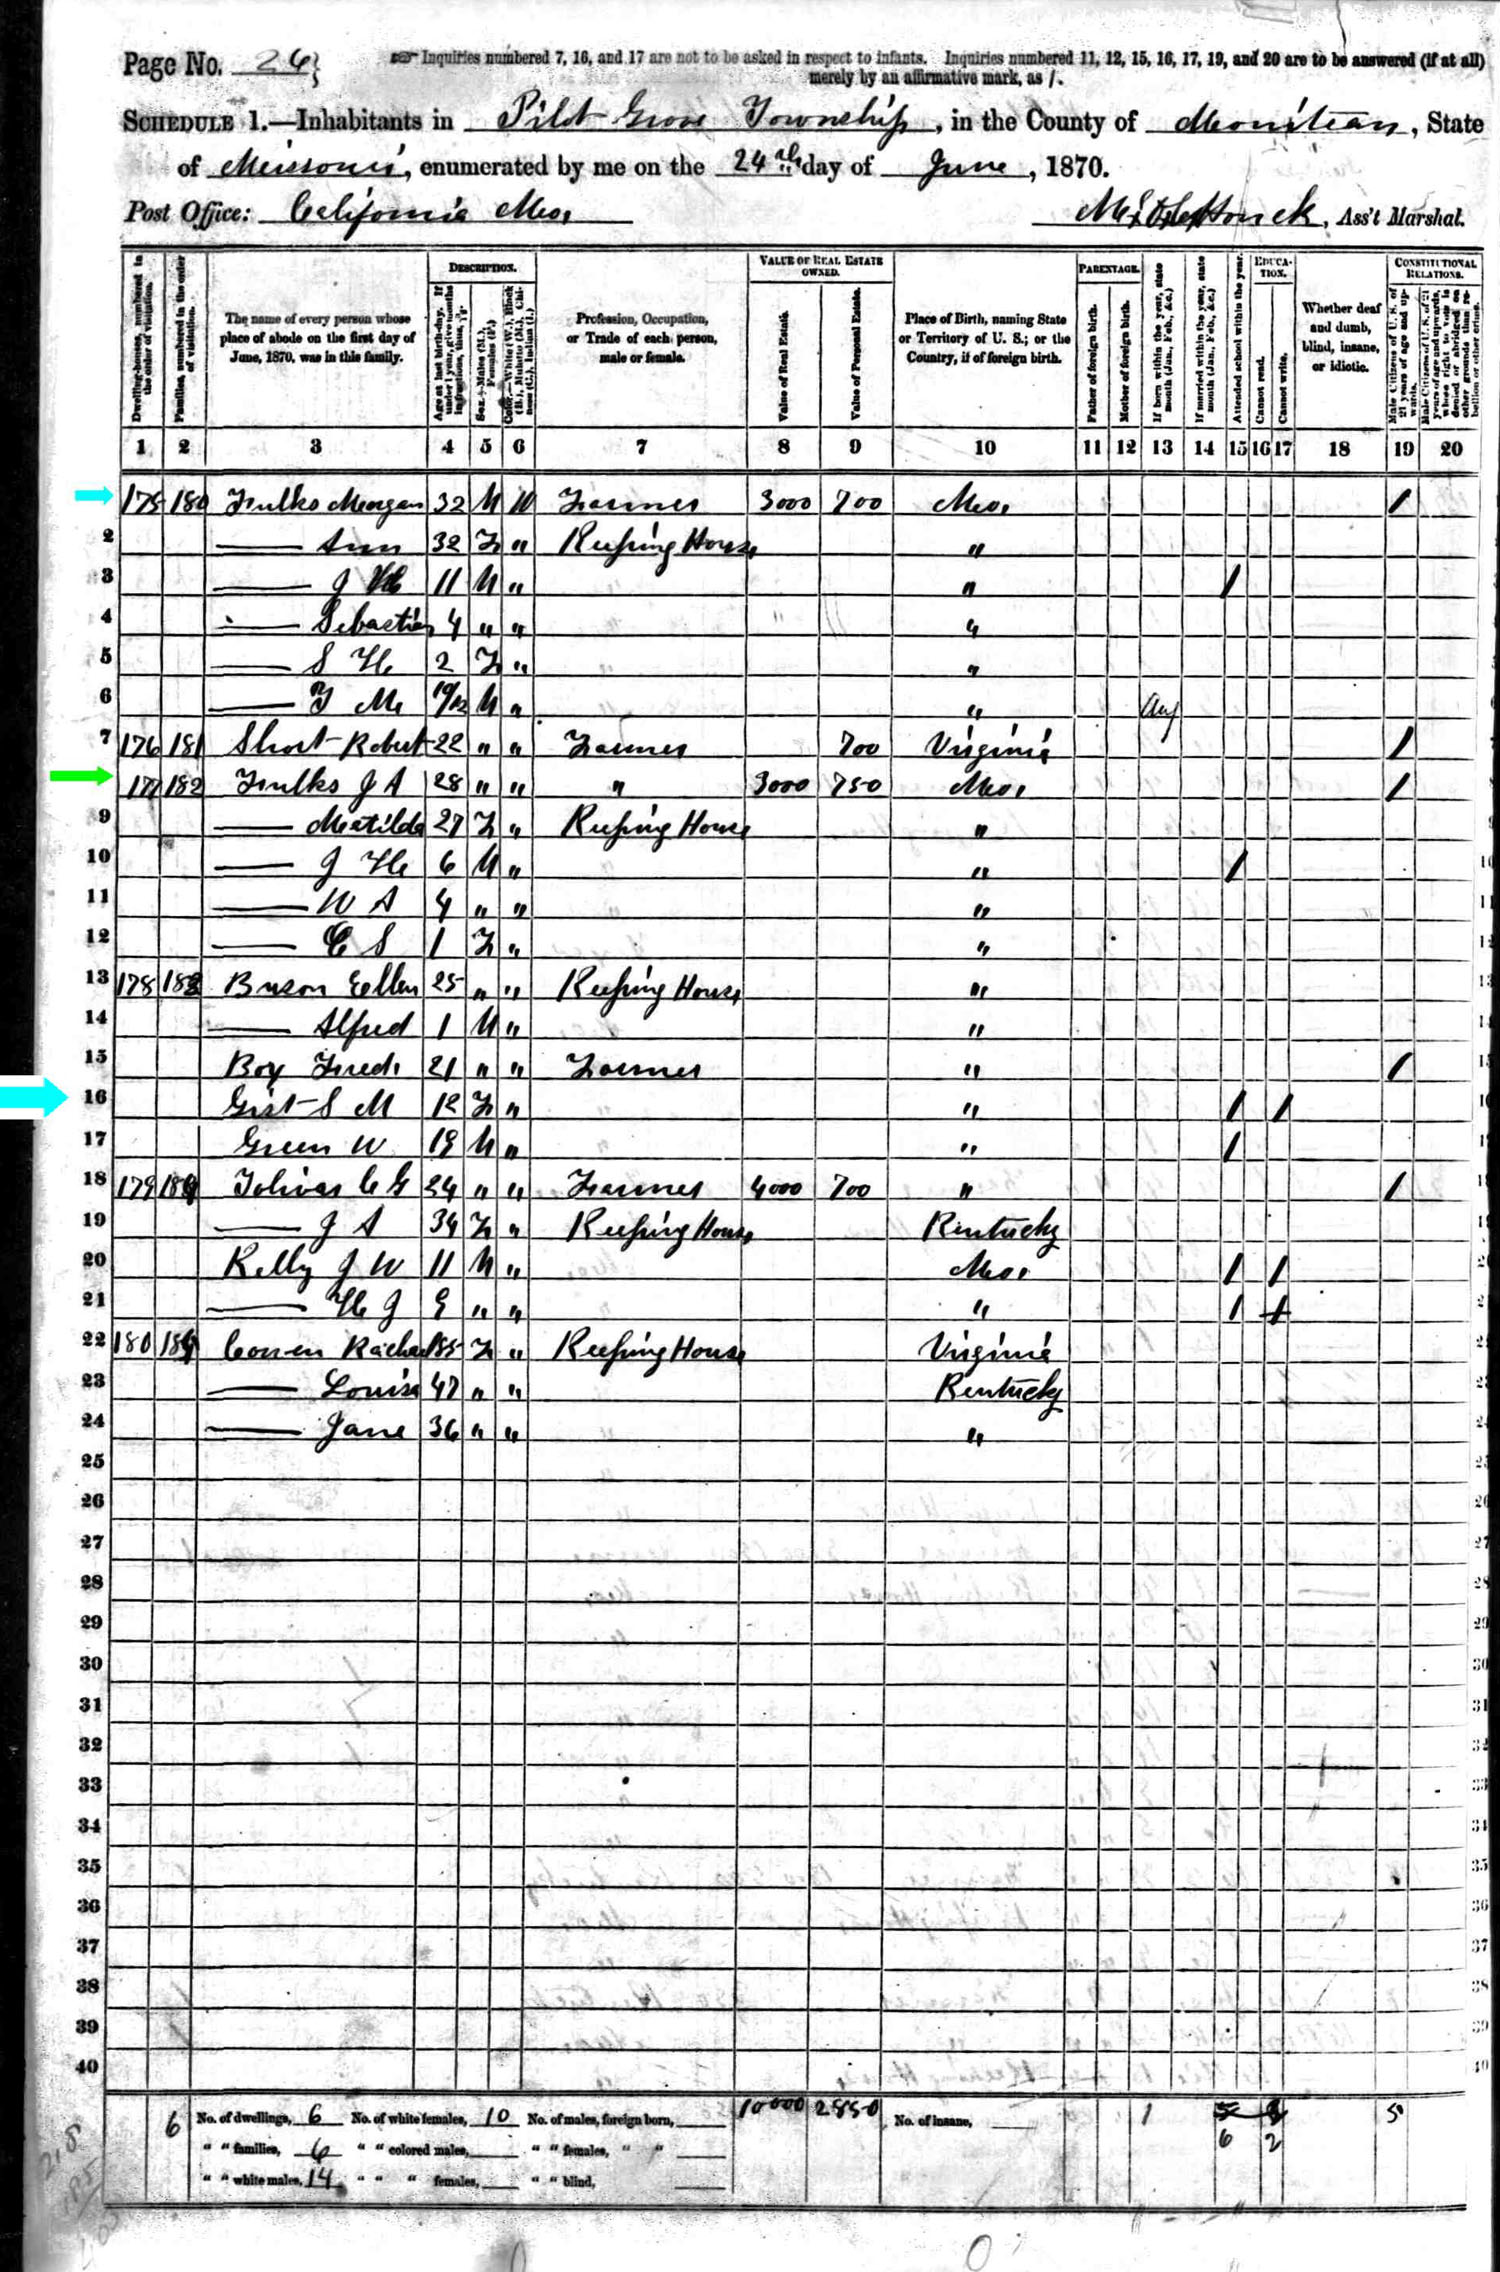 Page No. 26
Inquiries numbered 7, 16, and 17 are not to be asked in respect to infants. Inquiries numbered 11, 12, 15, 16, 17, 19, and 20 are to be answered (if at all)
merely by an affirmative mark, as /.
SCHEDULE 1.—Inhabitants in Pilot Grove Township, in the County of Moniteau, State
of Missouri, enumerated by me on the 24th day of June, 1870.
Post Office: California Mo. Ass't Marshal.
Dwelling-houses, numbered in the order of visitation.
Families, numbered in the order of visitation.
The name of every person whose place of abode on the first day of June, 1870, was in this family.
DESCRIPTION.
Age at last birth-day. If under 1 year, give months in fractions, thus, 3/12.
Sex.—Males (M.), Females (F.)
Color.—White (W.), Black (B.), Mulatto (M.), Chinese (C.), Indian (I.)
Profession, Occupation, or Trade of each person, male or female.
VALUE OF REAL ESTATE OWNED.
Value of Real Estate.
Value of Personal Estate.
Place of Birth, naming State or Territory of U. S.; or the Country, if of foreign birth.
PARENTAGE.
Father of foreign birth.
Mother of foreign birth.
If born within the year, state month (Jan., Feb., &c.)
If married within the year, state month (Jan., Feb., &c.)
EDUCATION.
Attended school within the year.
Cannot read.
Cannot write.
Whether deaf and dumb, blind, insane, or idiotic.
CONSTITUTIONAL RELATIONS.
Male Citizens of U. S. of 21 years of age and upwards.
Male Citizens of U. S. of 21 years of age and upwards, whose right to vote is denied or abridged on other grounds than rebellion or other crime.
1 2 3 4 5 6 7 8 9 10 11 12 13 14 15 16 17 18 19 20
175 180 Fulks Morgan 32 M W Farmer 3000 700 Mo. /
2 — Ann 32 F " Keeping House "
3 — J 11 M " " /
4 — Sebastian 4 " " "
5 — S H 2 F " "
6 — T M 10/12 M " " Aug
7 176 181 Short Robert 22 " " Farmer 700 Virginia /
177 182 Fulks J A 28 " " " 3000 750 Mo. /
9 — Matilda 27 F " Keeping House "
10 — J H 6 M " " /
11 — W A 4 " " "
12 — C S 1 F " "
13 178 183 Ellen 25 " " Keeping House "
14 — Alfred 1 M " "
15 Boy Fred. 21 " " Farmer " /
16 Gist S M 12 F " " / /
17 Green W 19 M " " /
18 179 184 Tolivar C G 24 " " Farmer 4000 700 " /
19 — J A 34 F " Keeping House Kentucky
20 Kelly J W 11 M " Mo. / /
21 — H J 9 " " " / /
22 180 Rachael 85 F " Keeping House Virginia
23 — Louisa 47 " " Kentucky
24 — Jane 36 " " "
25
26
27
28
29
30
31
32
33
34
35
36
37
38
39
40
6 No. of dwellings, 6 No. of white females, 10 No. of males, foreign born, 10000 2850 No. of insane, 1 5
" " families, 6 " " colored males, " " females, " " 6 2
" " white males, 14 " " " females, " " blind,